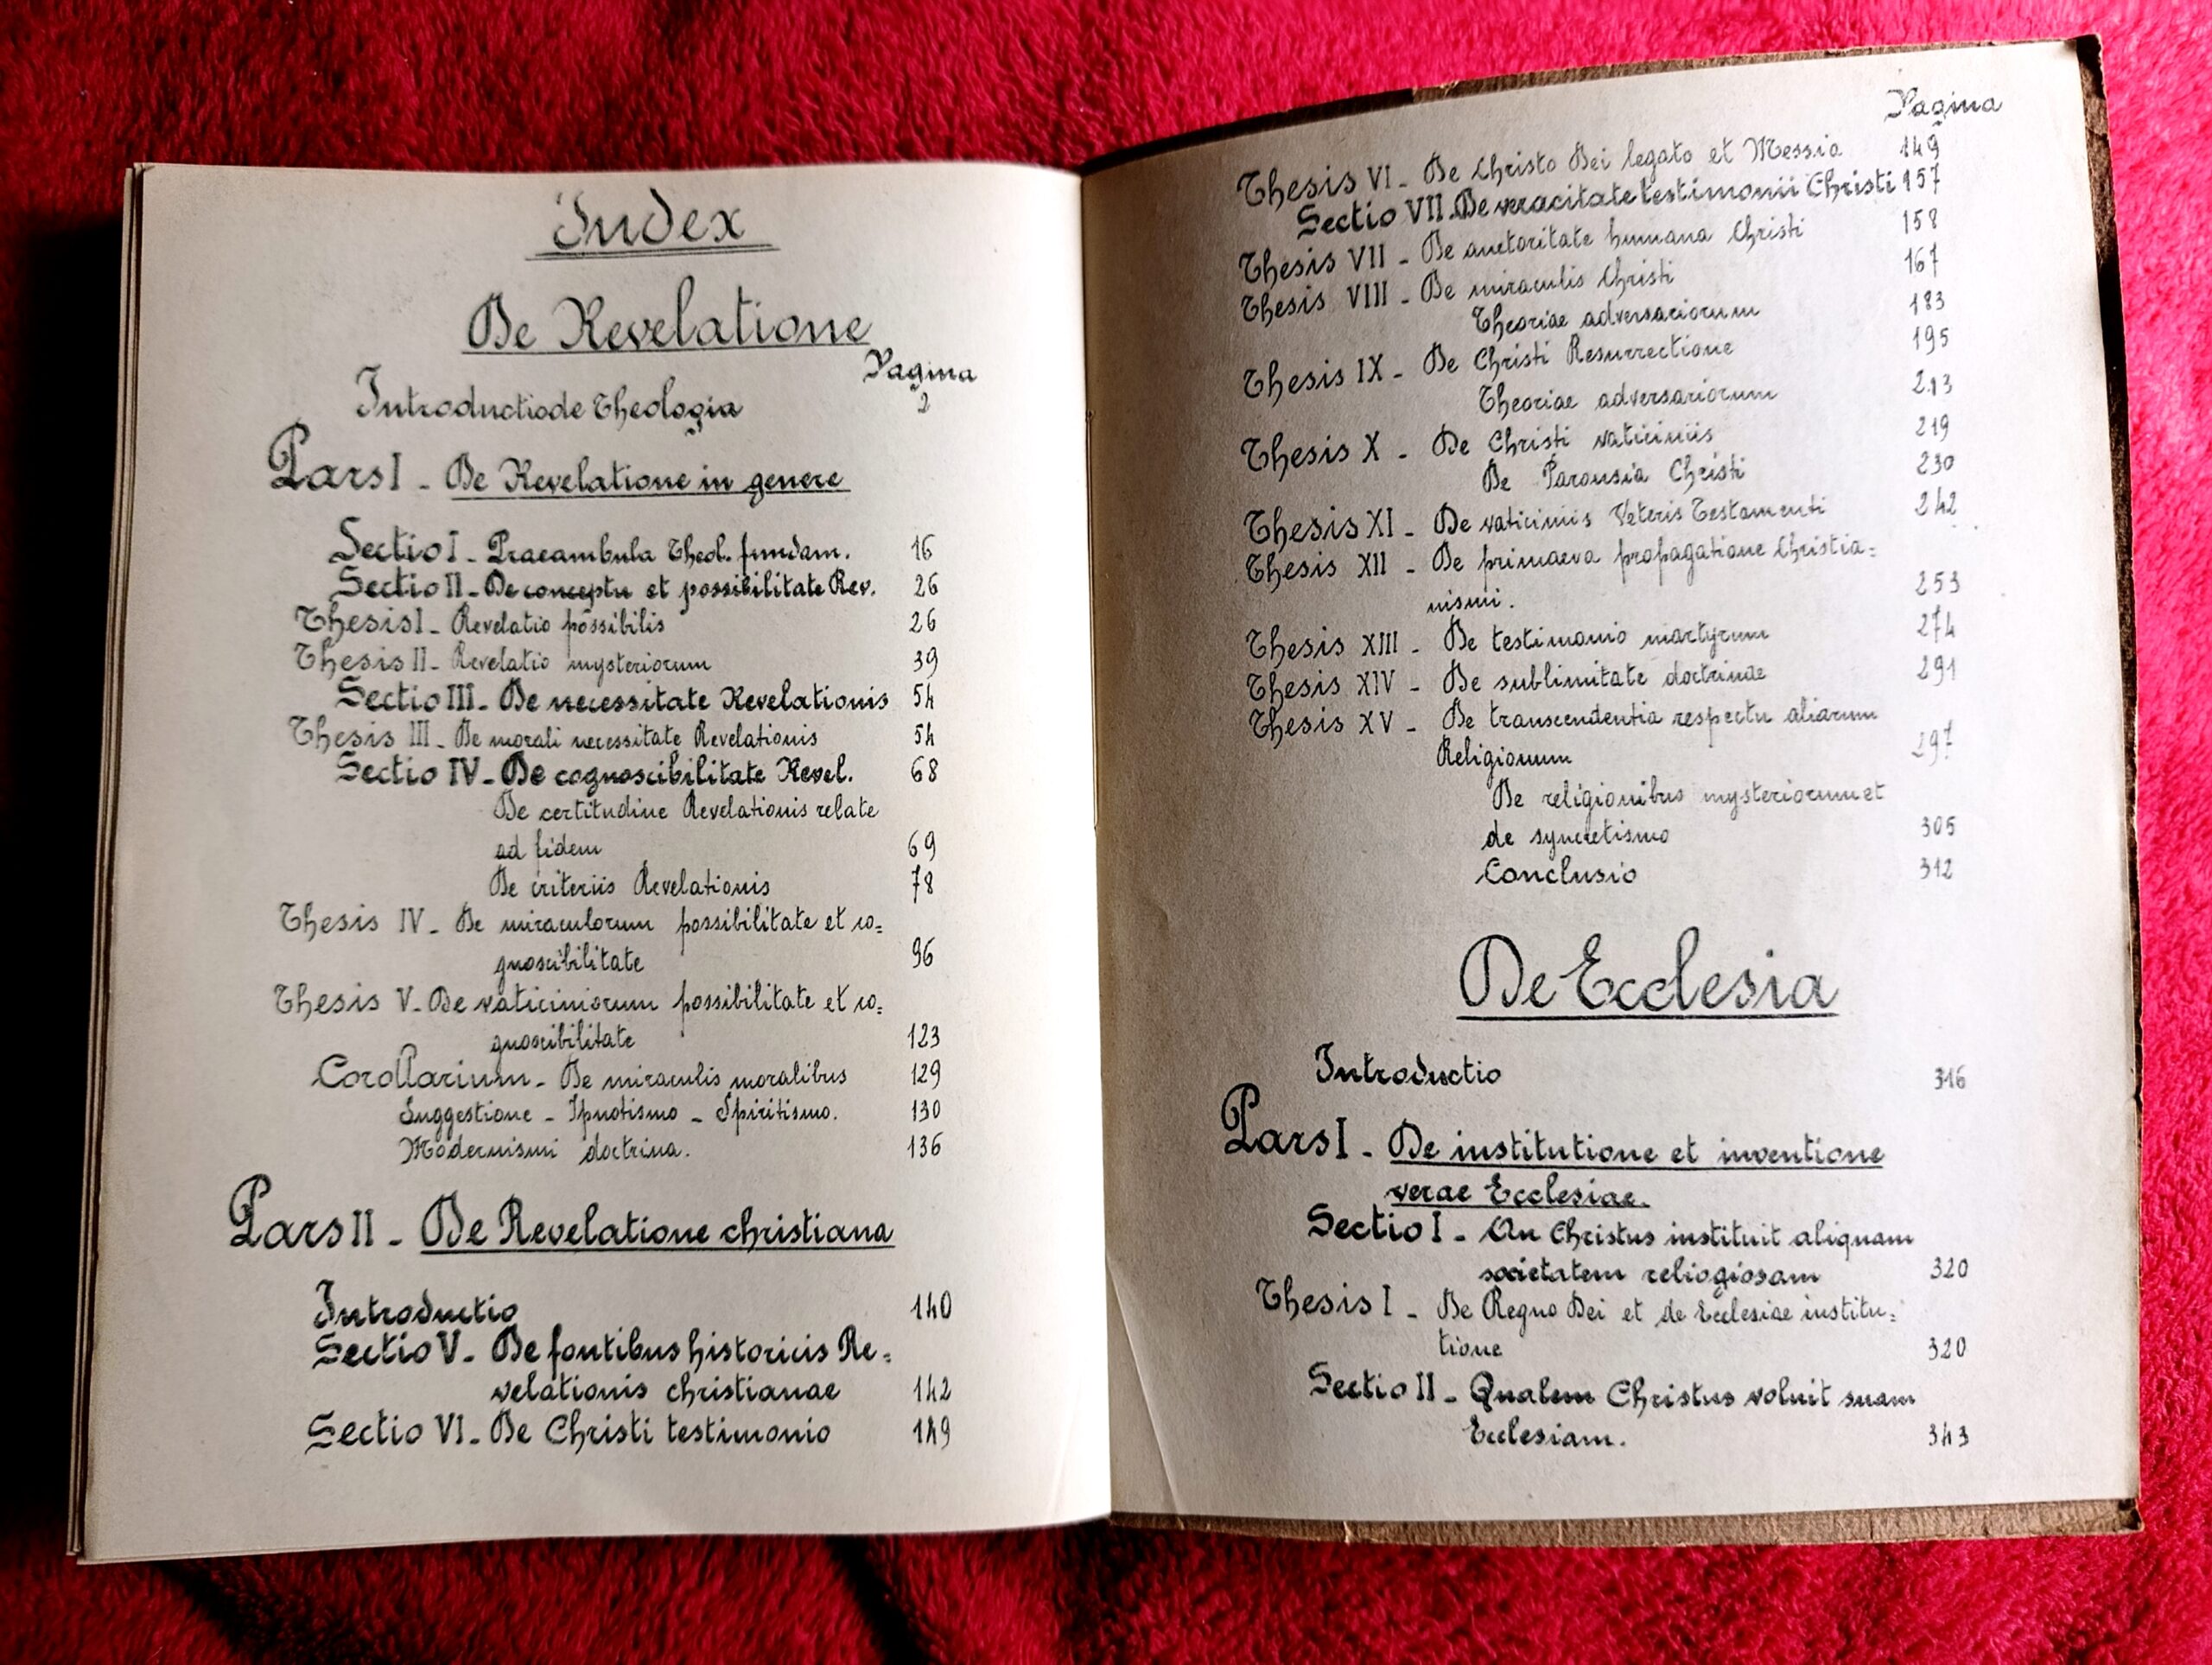 Index
De Revelatione
Pagina
Introductio de Theologia 2
Pars I - De Revelatione in genere
Sectio I - Praeambula Theol. fundam. 16
Sectio II - De conceptu et possibilitate Rev. 26
Thesis I - Revelatio possibilis 26
Thesis II - Revelatio mysteriorum 39
Sectio III - De necessitate Revelationis 54
Thesis III - De morali necessitate Revelationis 54
Sectio IV - De cognoscibilitate Revel. 68
De certitudine Revelationis relate
ad fidem 69
De criteriis Revelationis 78
Thesis IV - De miraculorum possibilitate et co=
gnoscibilitate 96
Thesis V - De vaticiniorum possibilitate et co=
gnoscibilitate 123
Corollarium - De miraculis moralibus 129
Suggestione - Ipnotismo - Spiritismo. 130
Modernismi doctrina. 136
Pars II - De Revelatione christiana
Introductio 140
Sectio V - De fontibus historicis Re=
velationis christianae 142
Sectio VI - De Christi testimonio 149
Pagina
Thesis VI - De Christo Dei legato et Messia 149
Sectio VII - De veracitate testimonii Christi 157
Thesis VII - De auctoritate humana Christi 158
Thesis VIII - De miraculis Christi 167
Theoriae adversariorum 183
Thesis IX - De Christi Resurrectione 195
Theoriae adversariorum 213
Thesis X - De Christi vaticiniis 219
De Parousia Christi 230
Thesis XI - De vaticiniis Veteris Testamenti 242
Thesis XII - De primaeva propagatione Christia=
nismi. 253
Thesis XIII - De testimonio martyrum 274
Thesis XIV - De sublimitate doctrinae 291
Thesis XV - De transcendentia respectu aliarum
Religionum 297
De religionibus mysteriorum et
de syncretismo 305
Conclusio 312
De Ecclesia
Introductio 316
Pars I - De institutione et inventione
verae Ecclesiae.
Sectio I - An Christus instituit aliquam
societatem reliogiosam 320
Thesis I - De Regno Dei et de Ecclesiae institu=
tione 320
Sectio II - Qualem Christus voluit suam
Ecclesiam. 343